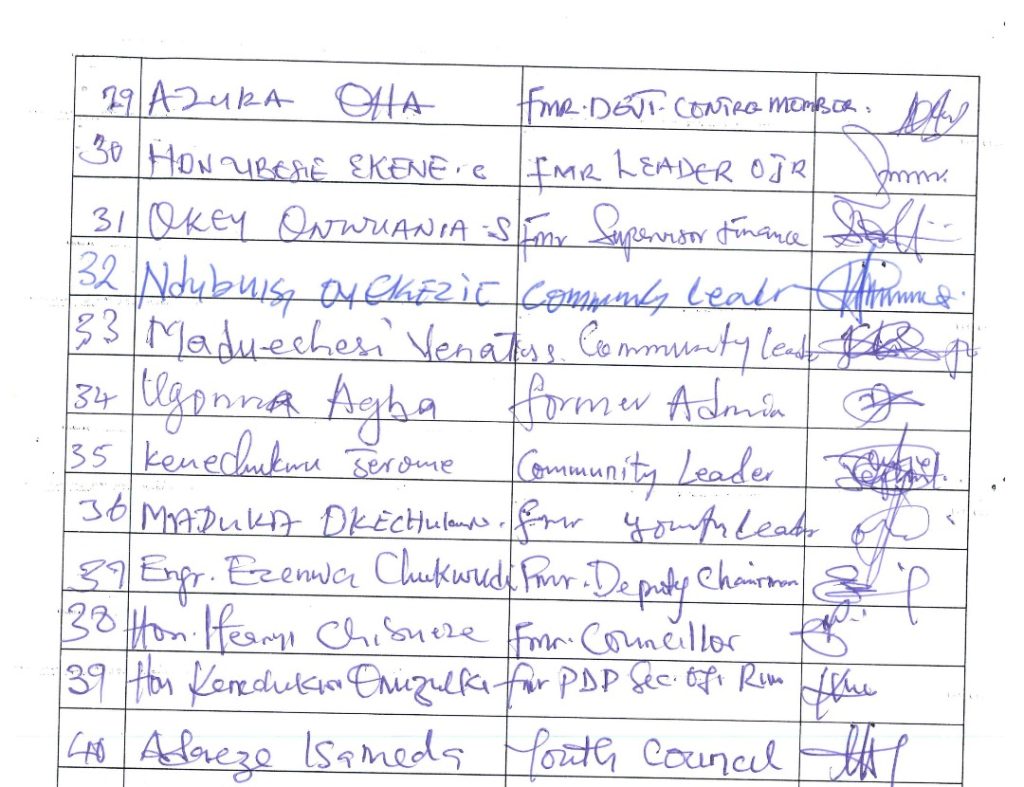 29 AZUKA OHA FMR. DEVT. CONTRO MEMBER.
30 HON UBESIE EKENE. C FMR LEADER OJR
31 OKEY ONWUANIA-S Fmr Supervisor Finance
32 Ndubuisi OYEKEZIE Community leader
33 Madu-echesi Venatus Community leader
34 Ugonna Agba former Admin
35 Kenechukwu Jerome Community Leader
36 MADUKA OKECHUKWU. fmr youth leader
37 Engr. Ezenwa Chukwudi Fmr. Deputy Chairman
38 Hon. Ifeanyi Chisneze Fmr. Councillor
39 Hon Kenechukwu fmr PDP Sec.
40 Isameda Youth Council